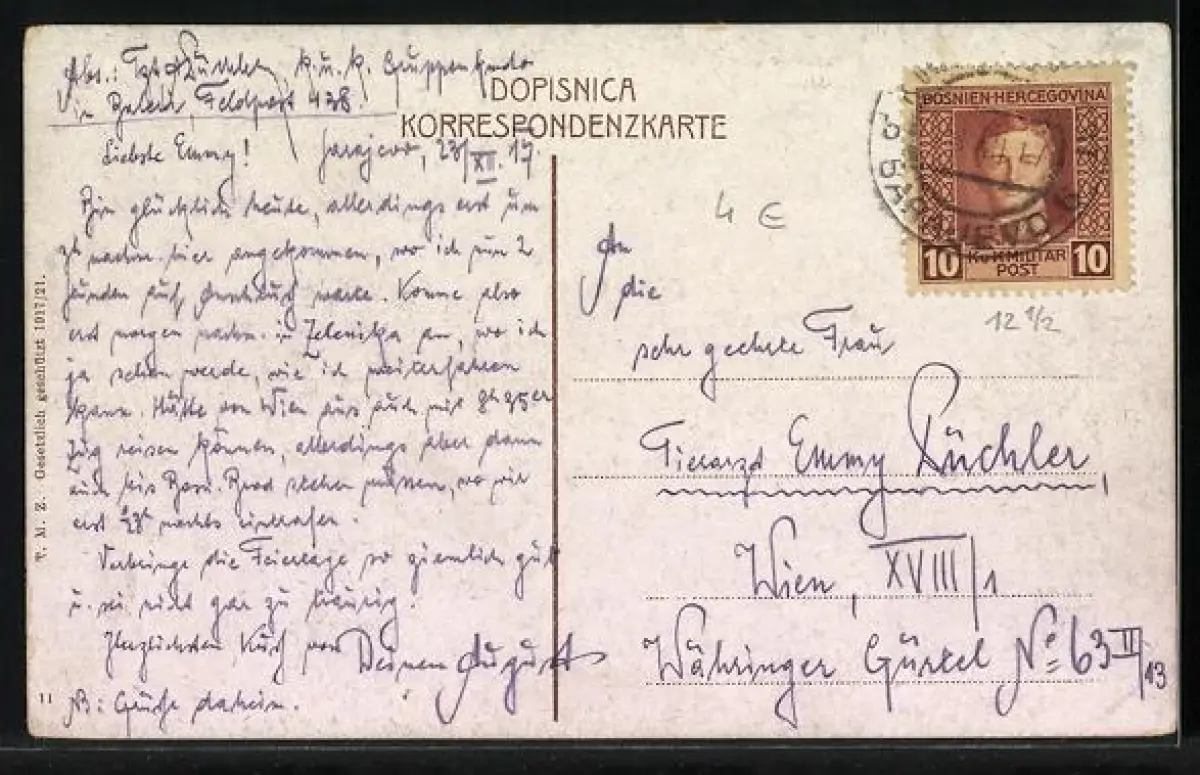 Abs.: Tzt Püchler, k.u.k. Gruppenkmdo
in Feldpost 438.
DOPISNICA
KORRESPONDENZKARTE
Liebste Emmy! Sarajevo, 23/XII. 17.
Bin glücklich heute, allerdings erst um
nachm. hier angekommen, wo ich nun 2
Stunden auf Anschluß warte. Komme also
erst morgen nachm. in Zelenika an, wo ich
ja sehen werde, wie ich weiterfahren
kann. Hätte von Wien aus auch mit
Zug reisen können, allerdings aber dann
auch bis Bosn. Brod stehen müssen, wo wir
erst nachts eintrafen.
Verbringe die Feiertage so ziemlich gut
u. sei nicht gar zu traurig.
Herzlichsten Kuß von Deinem August
NB: Grüße daheim.
11
T. M. Z. Gesetzlich geschützt 1917/21.
BOSNIEN-HERCEGOVINA
SARAJEVO
10 K.u.K. MILITÄR POST 10
4 €
12 1/2
An
die
sehr geehrte Frau
Tierarzt Emmy Püchler,
Wien, XVIII/1
Währinger Gürtel No 63 II/13